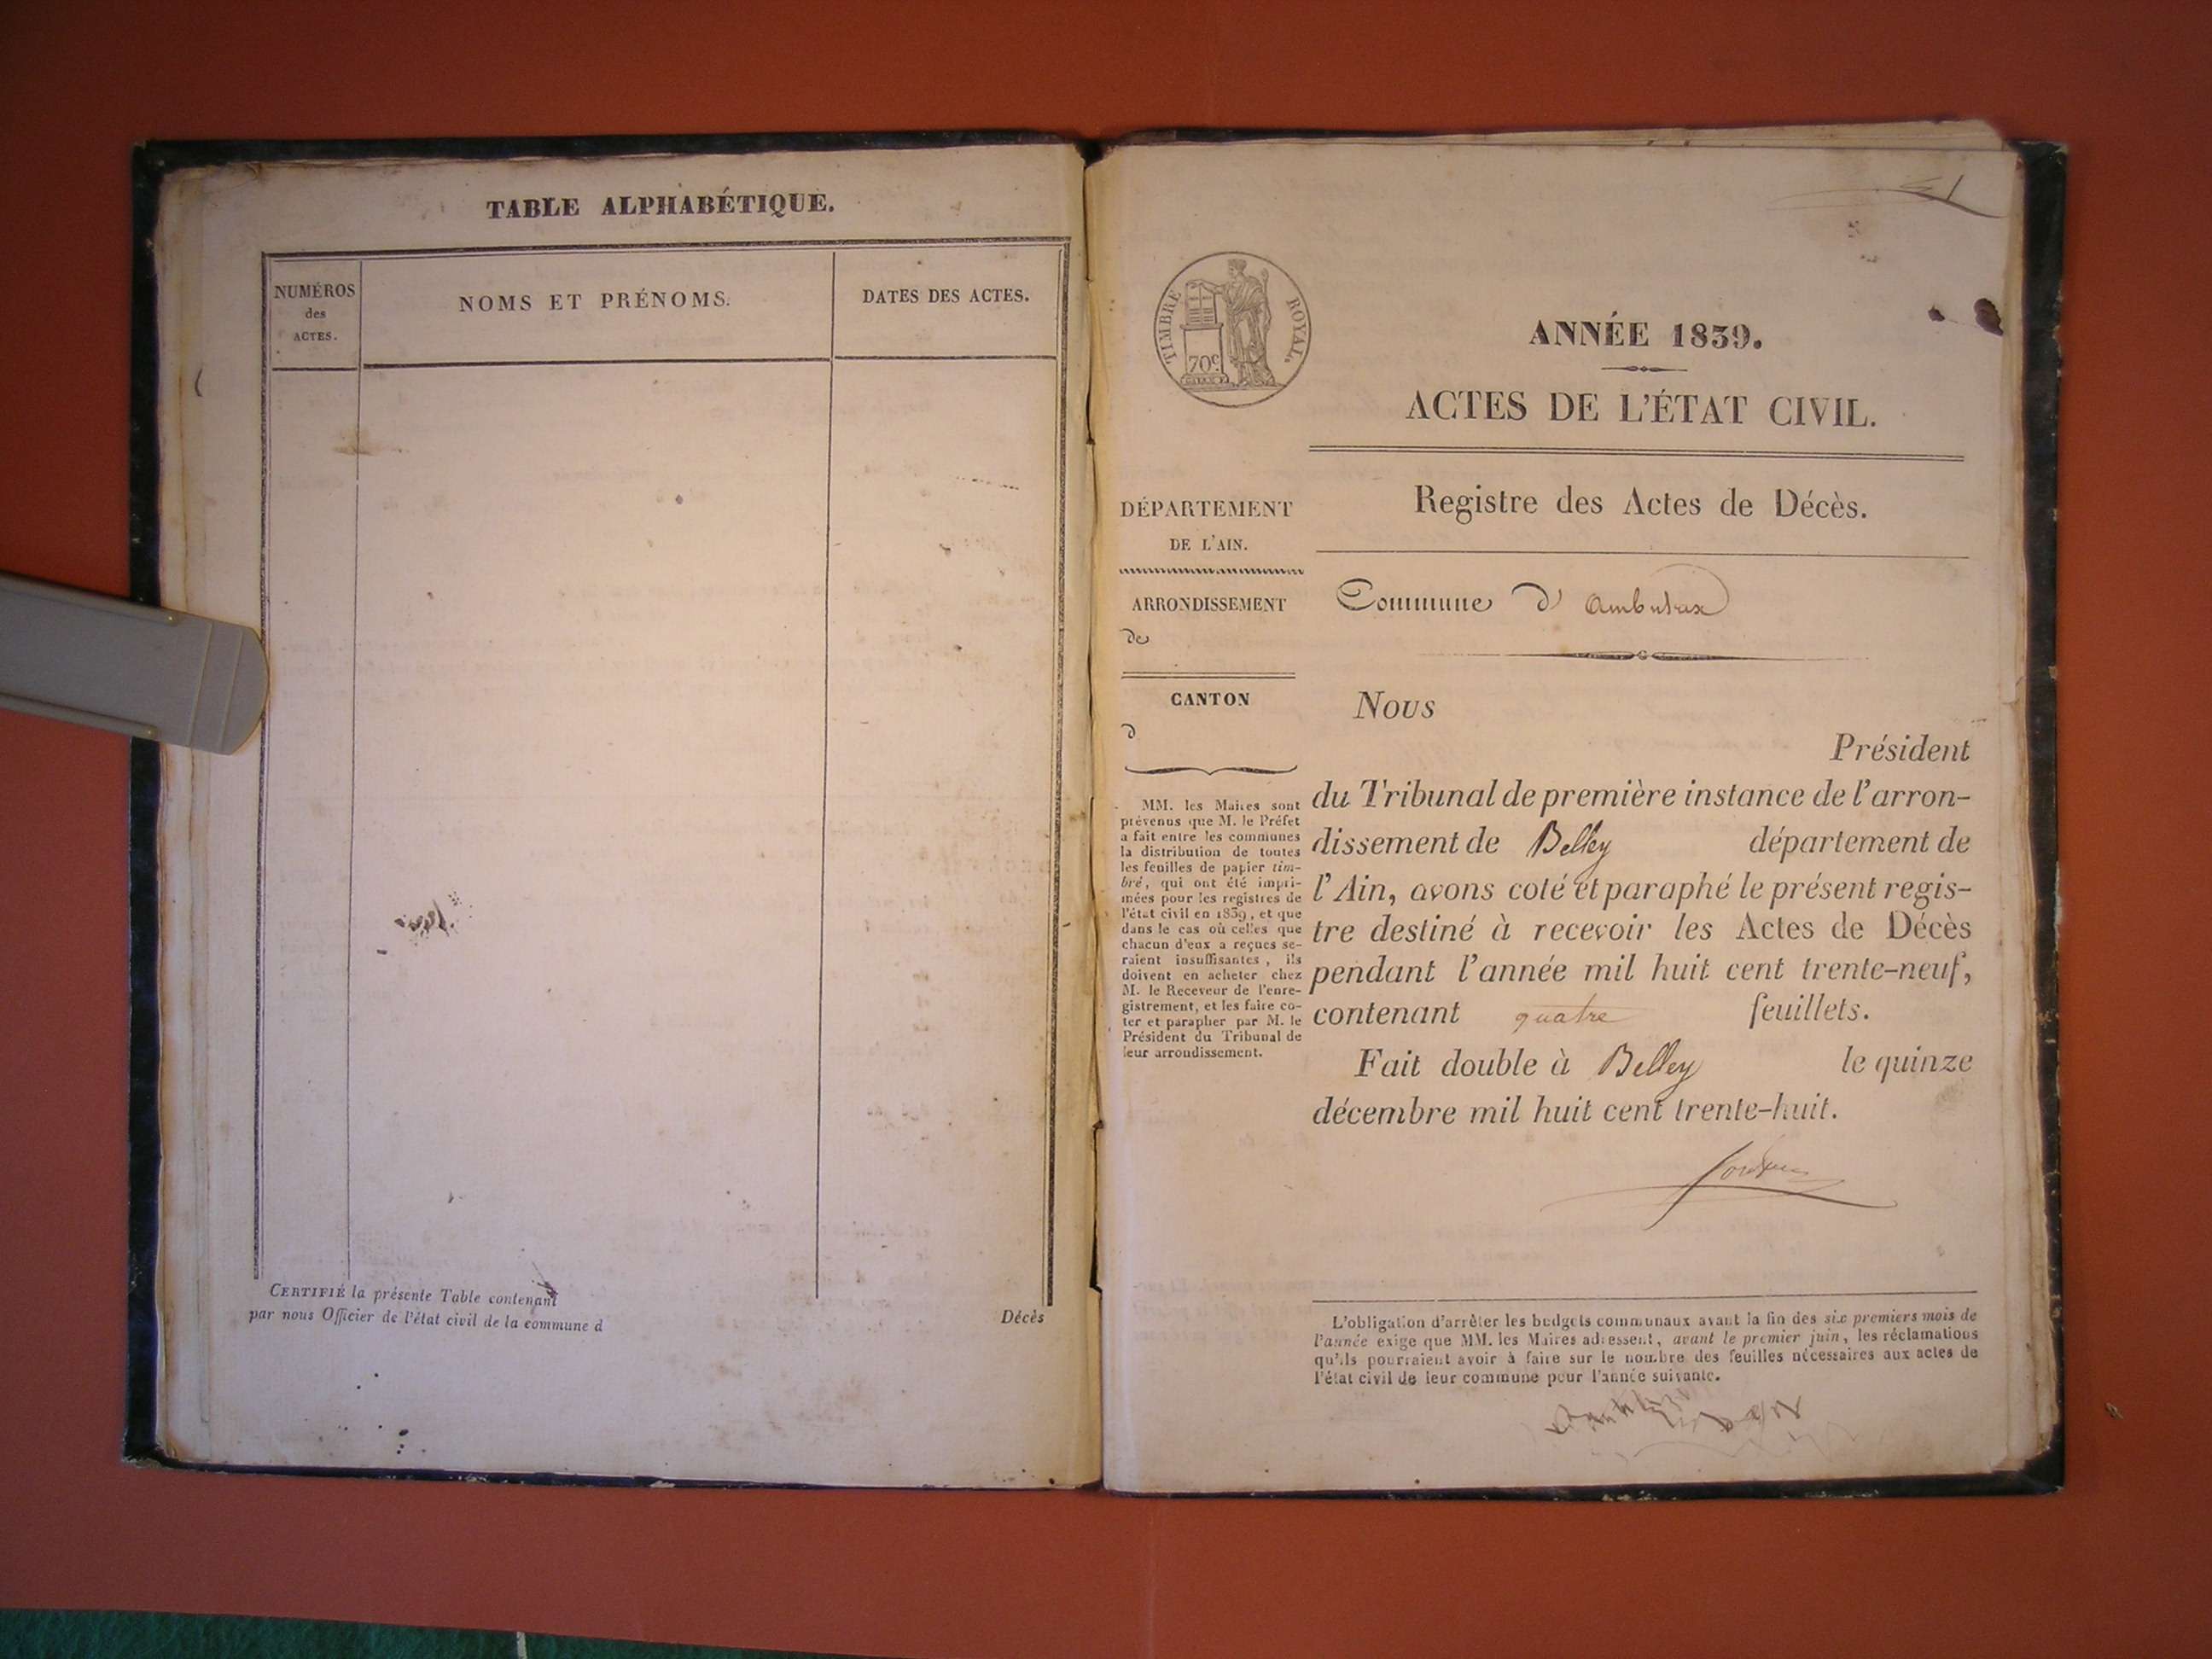 TABLE ALPHABÉTIQUE.
NUMÉROS
des
ACTES.
NOMS ET PRÉNOMS.
DATES DES ACTES.
CERTIFIÉ la présente Table contenant
Décès
par nous Officier de l'état civil de la commune d
TIMBRE ROYAL.
70c
ANNÉE 1839.
ACTES DE L'ÉTAT CIVIL.
Registre des Actes de Décès.
DÉPARTEMENT
DE L'AIN.
ARRONDISSEMENT
de
CANTON
d
MM. les Maires sont
prévenus que M. le Préfet
a fait entre les communes
la distribution de toutes
les feuilles de papier tim-
bré, qui ont été impri-
mées pour les registres de
l'état civil en 1839, et que
dans le cas où celles que
chacun d'eux a reçues se-
raient insuffisantes, ils
doivent en acheter chez
M. le Receveur de l'enre-
gistrement, et les faire co-
ter et parapher par M. le
Président du Tribunal de
leur arrondissement.
Commune d' ambutrix
Nous
Président
du Tribunal de première instance de l'arron-
dissement de Belley département de
l'Ain, avons coté et paraphé le présent regis-
tre destiné à recevoir les Actes de Décès
pendant l'année mil huit cent trente-neuf,
contenant quatre feuillets.
Fait double à Belley le quinze
décembre mil huit cent trente-huit.
L'obligation d'arrêter les budgets communaux avant la fin des six premiers mois de
l'année exige que MM. les Maires adressent, avant le premier juin, les réclamations
qu'ils pourraient avoir à faire sur le nombre des feuilles nécessaires aux actes de
l'état civil de leur commune pour l'année suivante.